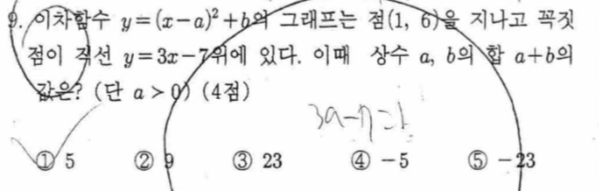 9. 이차함수 y=(x-a)²+b의 그래프는 점(1, 6)을 지나고 꼭짓
점이 직선 y=3x-7위에 있다. 이때 상수 a, b의 합 a+b의
값은? (단 a>0) (4점)
3a-7=b
① 5 ② 9 ③ 23 ④ -5 ⑤ -23